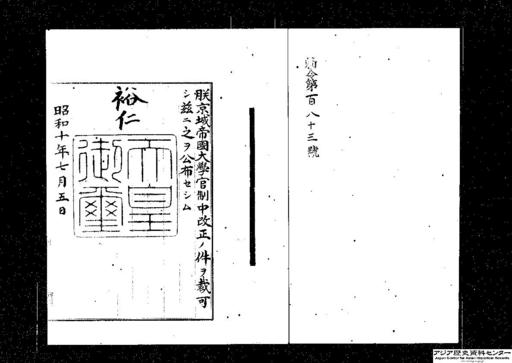 勅令第百八十三號
朕京城帝國大學官制中改正ノ件ヲ裁可
シ茲ニ之ヲ公布セシム
裕仁
天皇
御璽
昭和十年七月五日
アジア歴史資料センター
Japan Center for Asian Historical Records